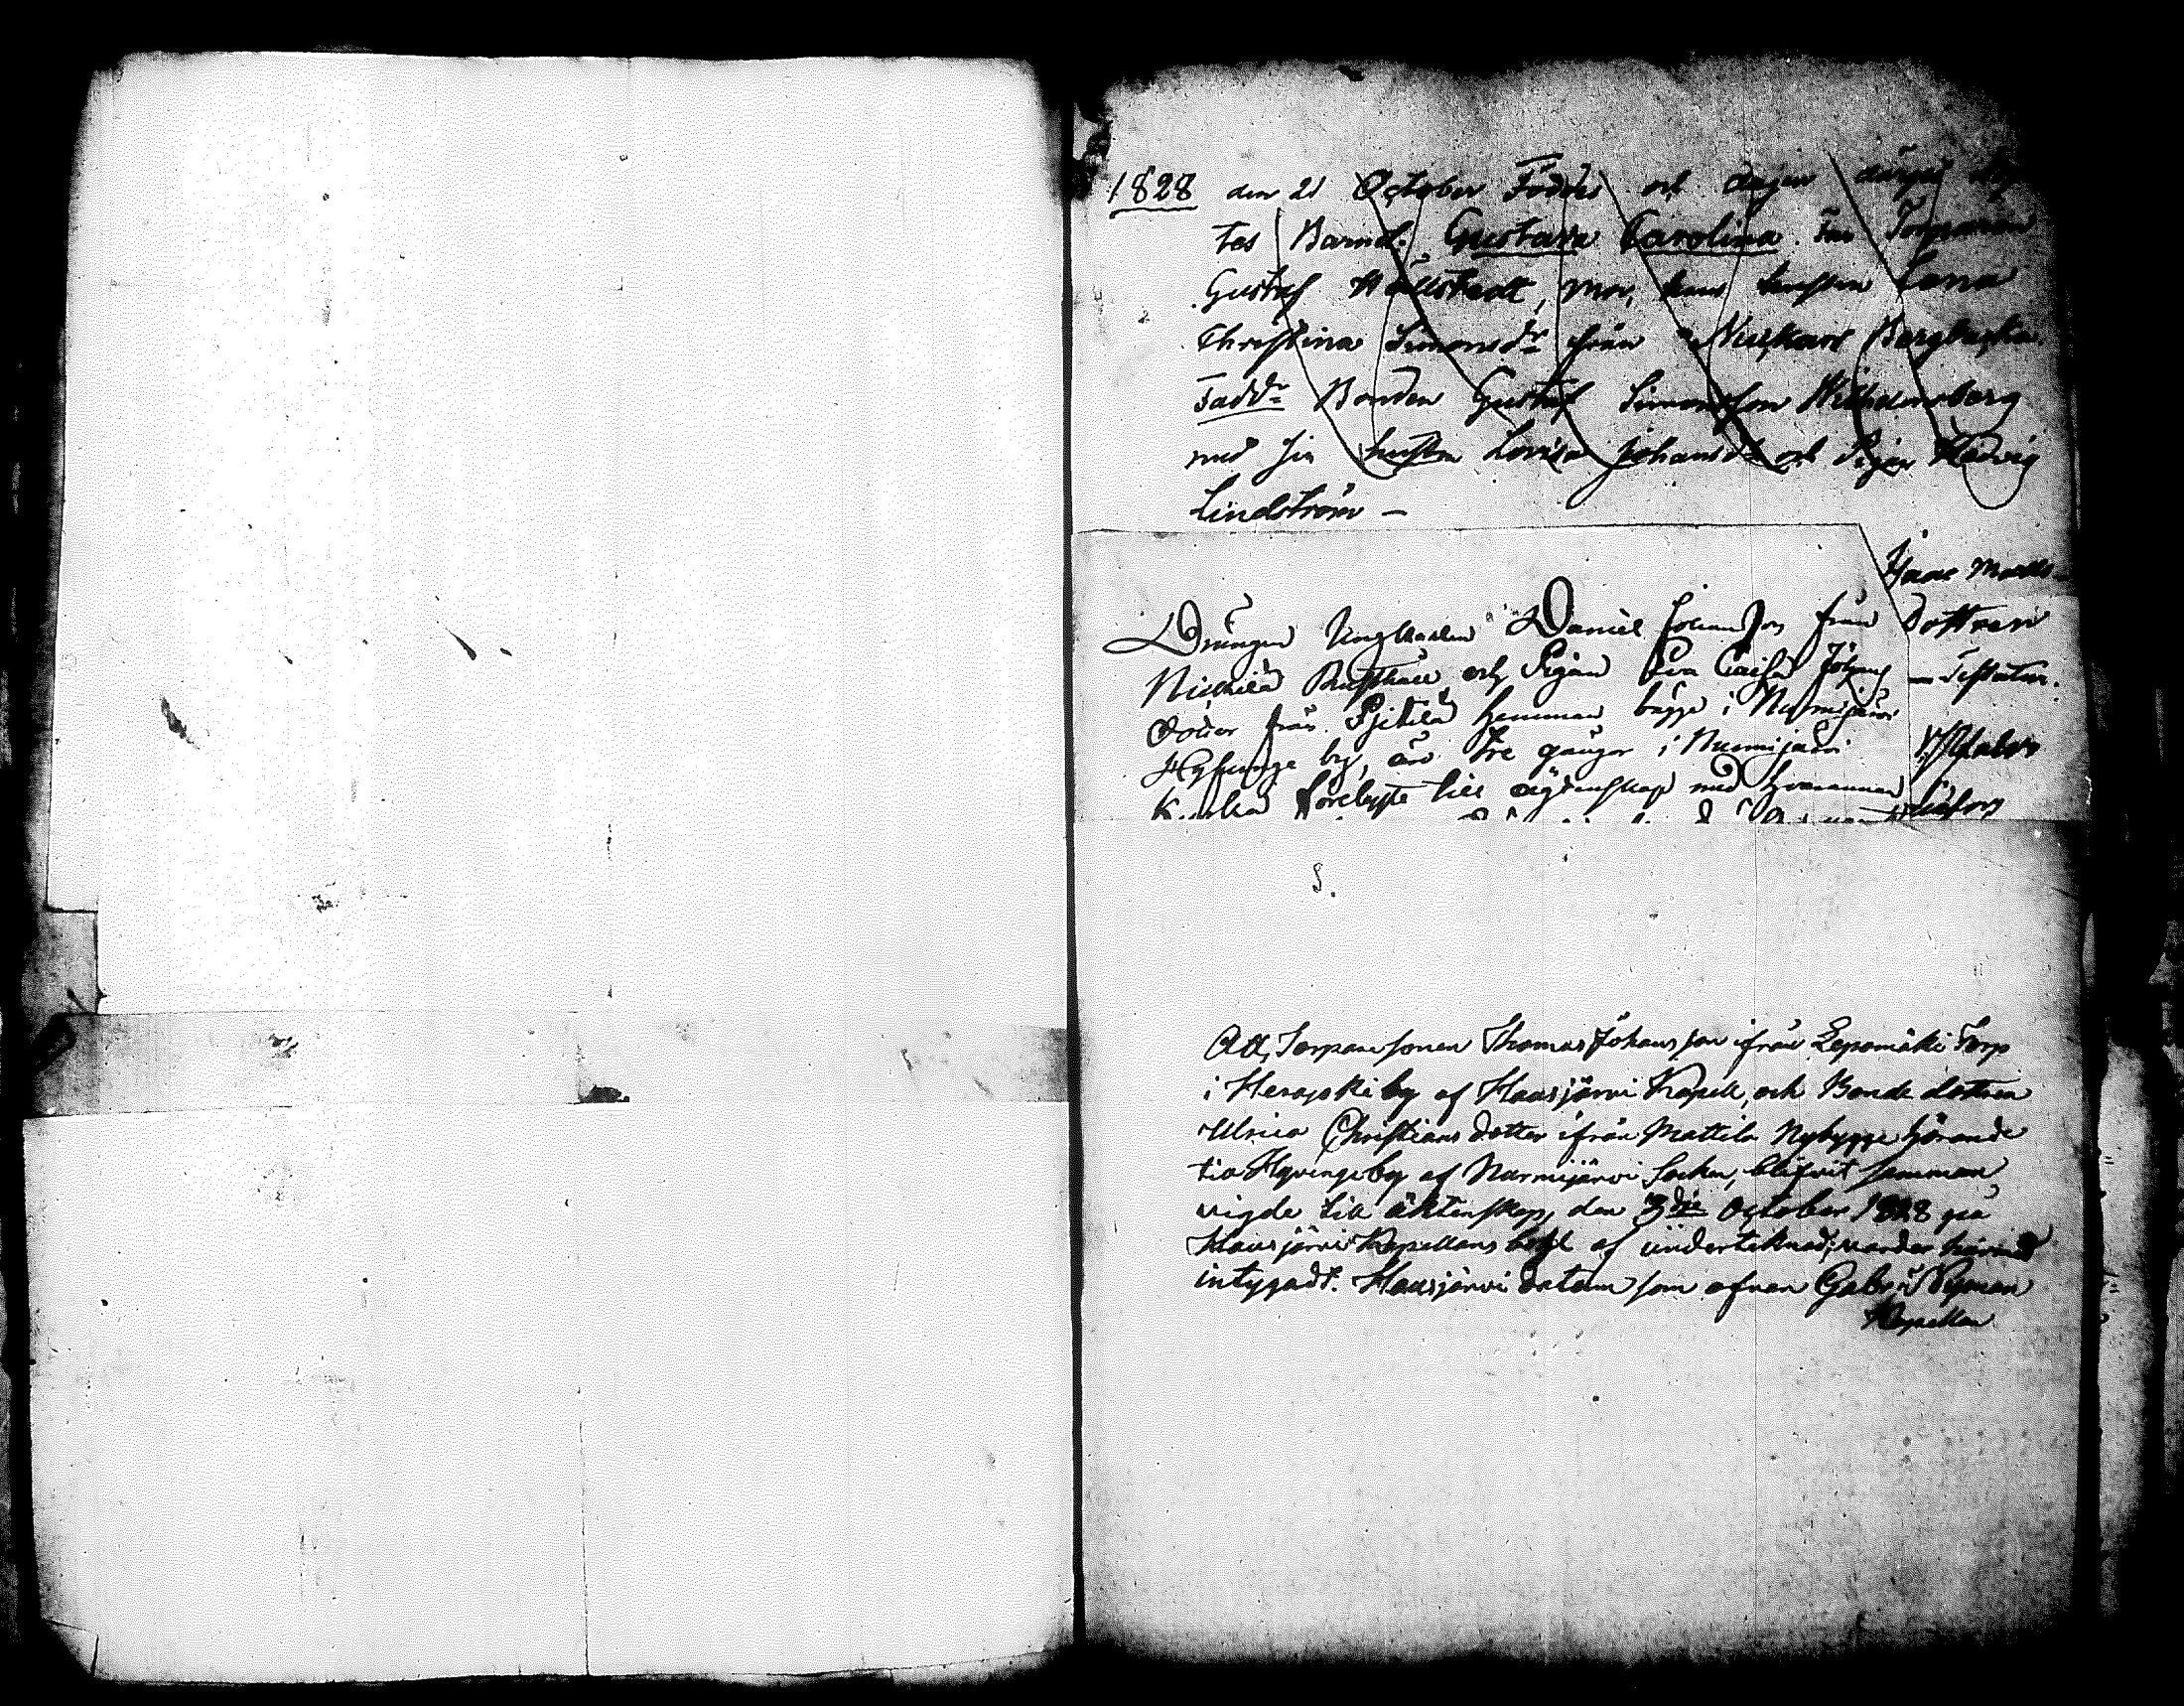 1828 den 21 October Föddes och dagen därpå döp
tes Barnet Gustava Carolina. Far Torparen
Gustaf Hällstedt, Mor, hans hustru Lena
Christina Simonsdr från Nuckars Bergbacka.
Faddr Bonden Gustaf Simonsson Wilhelmsberg
med sin hustru Lovisa Johansdr och Pigan Hedvig
Lindström —
Isaac Matts-
dottren
Drängen Ynglingen Daniel Johansson från
Nickilä Rusthåll och Pigan Eva Cajsa Johans
dotter från Pjikilä hemman bägge i Nurmijärvi
Hyfvinge by, äro tre gånger i Nurmijärvi
Kyrka förelyste till ägtenskap med hvarannan
S.
Att, Torpare sonen Thomas Johansson ifrån Lepomäki Torp
i Herajoki by af Hausjärvi Kapell, och Bonde dottren
Ulrica Christians dotter ifrån Mattila Nybygge hörande
till Hyvinge by af Nurmijärvi Socken, blifvit samman
vigde till äktenskap, den 3dje October 1828 på
Hausjärvi Kapellans bohl af undertecknad; varder härmed
intygadt. Hausjärvi datum som ofvan Gabr. Nyman
Kapellan